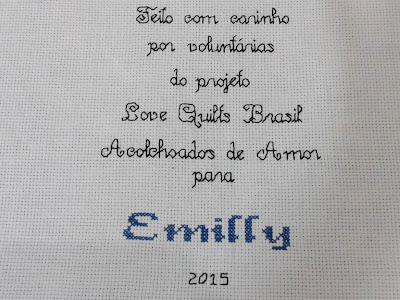 Feito com carinho
por voluntárias
do projeto
Love Quilts Brasil
Acolchoados de Amor
para
Emilly
2015